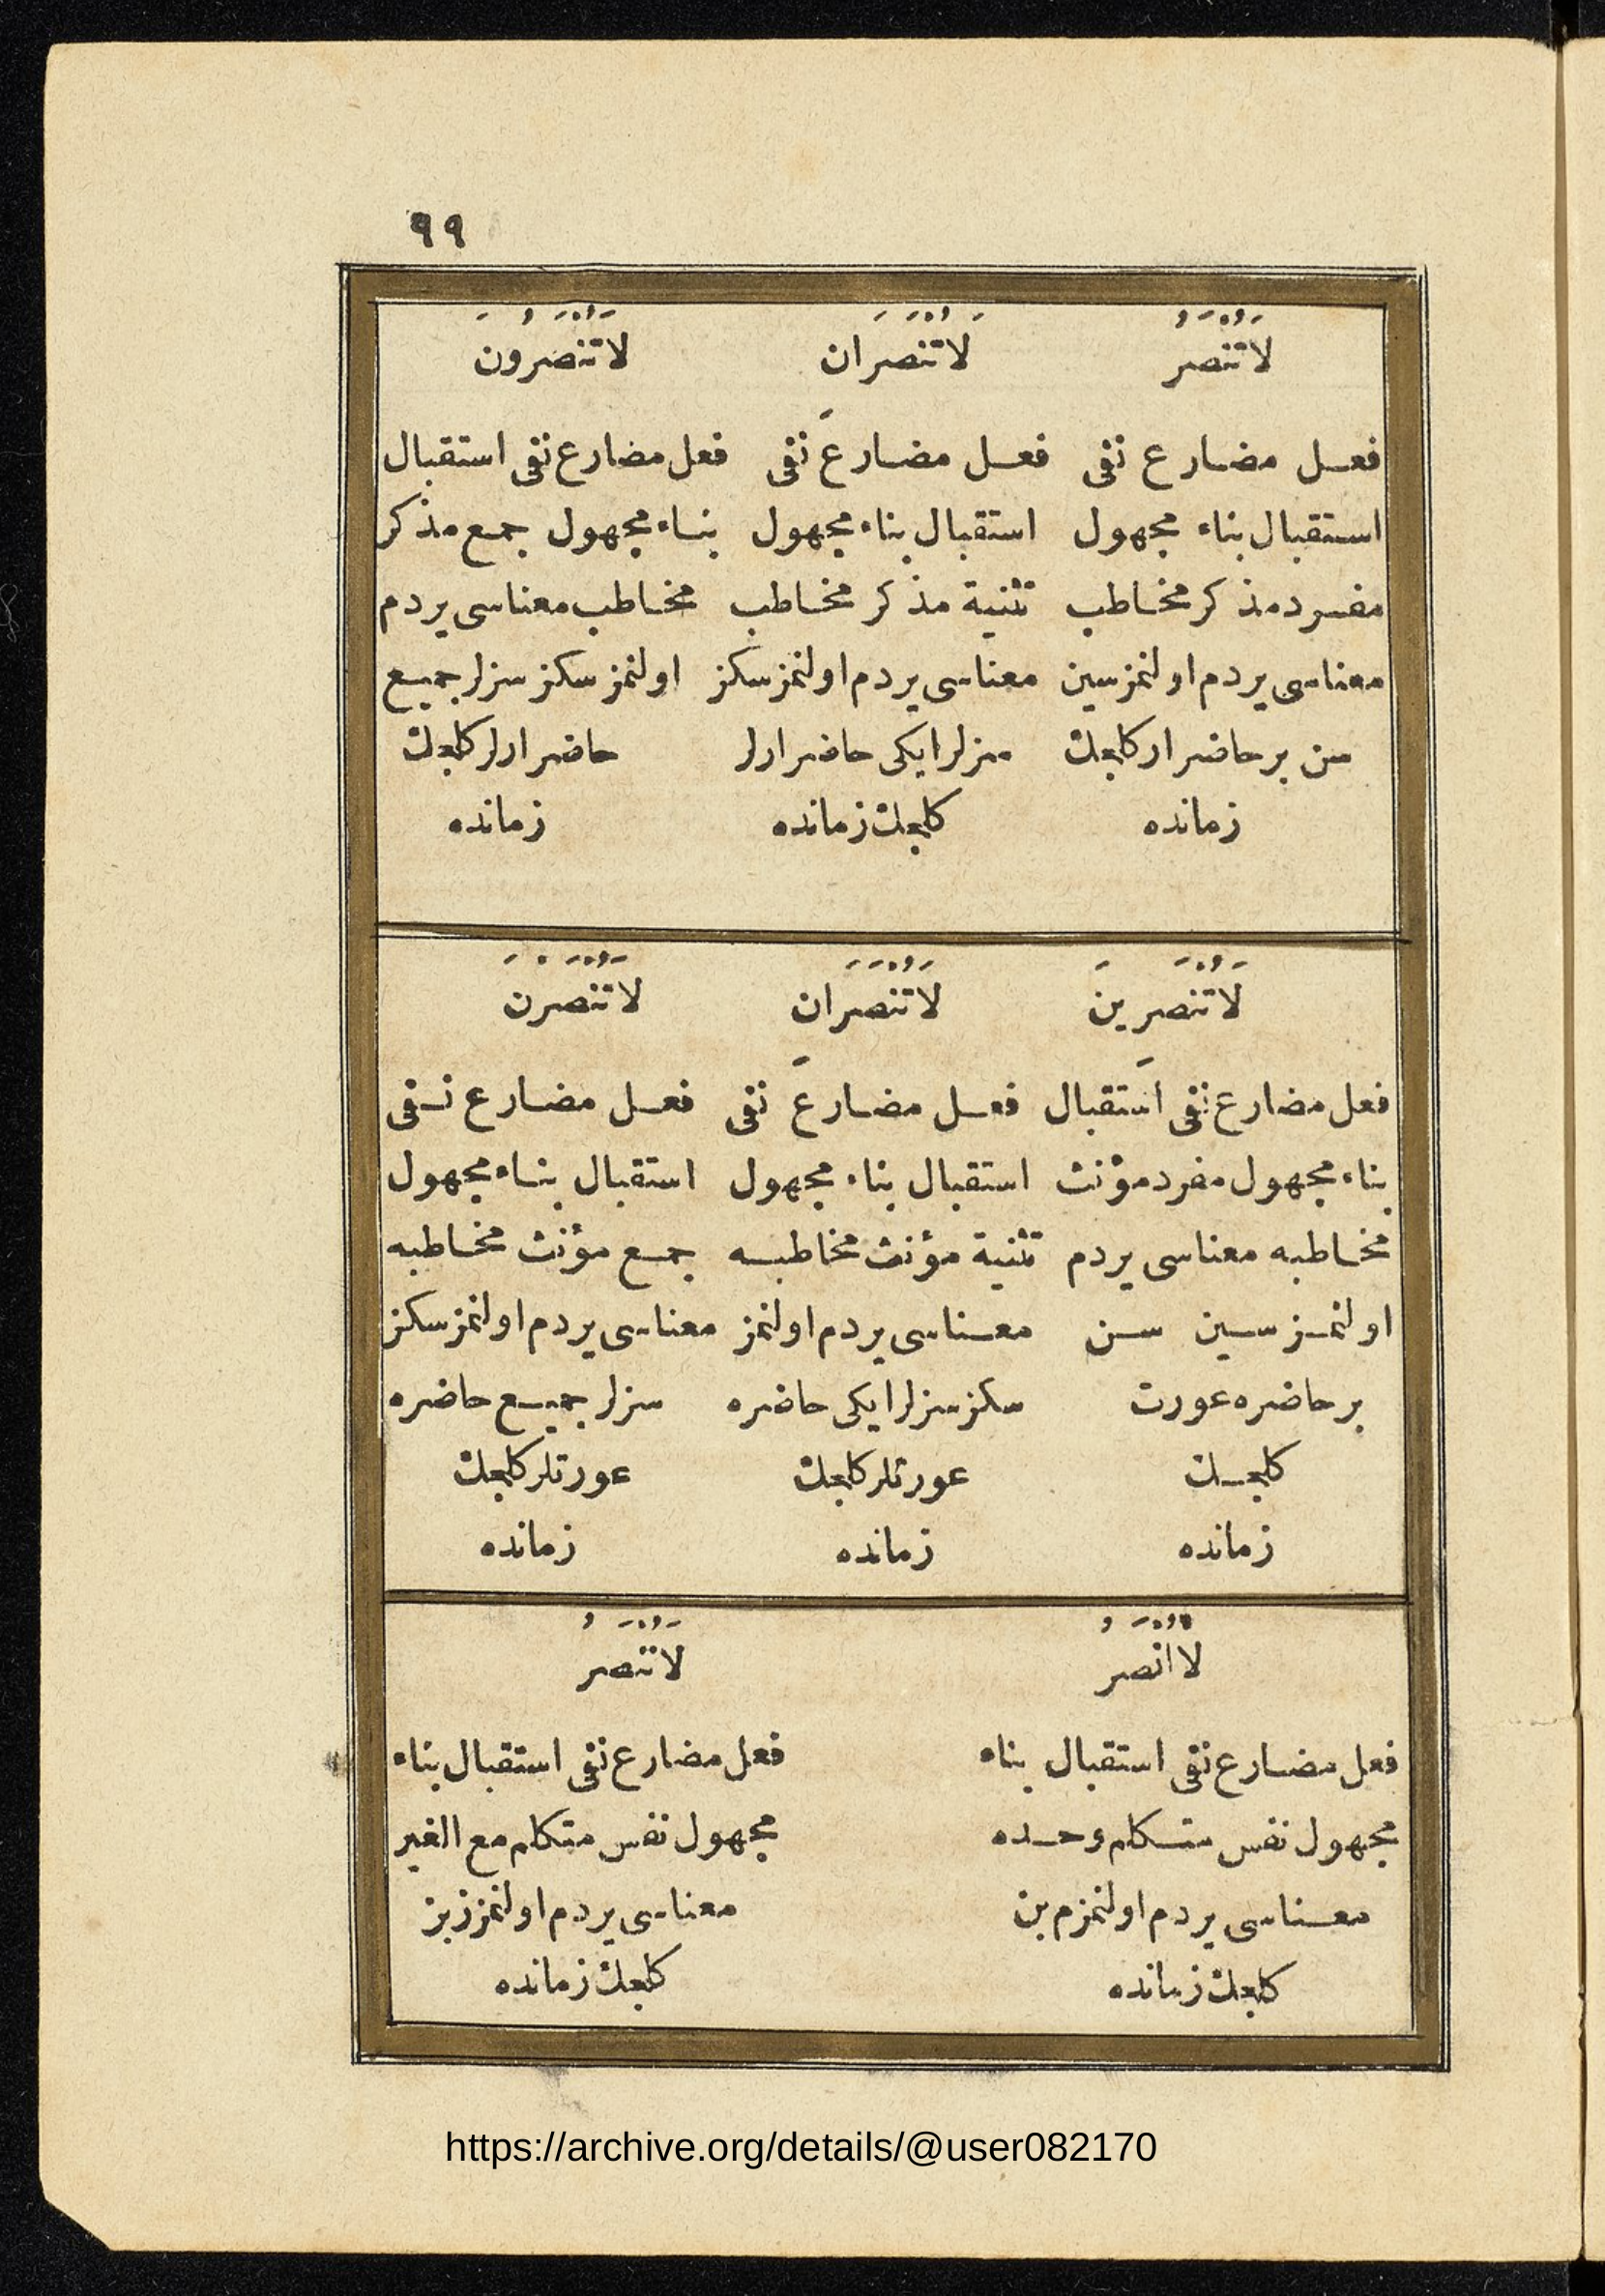 ٩٩
لَا تُنْصَرُ
فعل مضارع نفى
استقبال بناء مجهول
مفرد مذكر مخاطب
معناسى يردم اولنمزسين
سن بر حاضر ار كلجك
زمانده
لَا تُنْصَرَانِ
فعل مضارع نفى
استقبال بناء مجهول
تثنية مذكر مخاطب
معناسى يردم اولنمزسكز
سزلر ايكى حاضر ارلر
كلجك زمانده
لَا تُنْصَرُونَ
فعل مضارع نفى استقبال
بناء مجهول جمع مذكر
مخاطب معناسى يردم
اولنمز سكز سزلر جميع
حاضر ارلر كلجك
زمانده
لَا تُنْصَرِينَ
فعل مضارع نفى استقبال
بناء مجهول مفرد مؤنث
مخاطبه معناسى يردم
اولنمز سين سن
بر حاضره عورت
كلجك
زمانده
لَا تُنْصَرَانِ
فعل مضارع نفى
استقبال بناء مجهول
تثنية مؤنث مخاطبه
معناسى يردم اولنمز
سكز سزلر ايكى حاضره
عورتلر كلجك
زمانده
لَا تُنْصَرْنَ
فعل مضارع نفى
استقبال بناء مجهول
جمع مؤنث مخاطبه
معناسى يردم اولنمز سكز
سزلر جميع حاضره
عورتلر كلجك
زمانده
لَا اُنْصَرُ
فعل مضارع نفى استقبال بناء
مجهول نفس متكلم وحده
معناسى يردم اولنمزم بن
كلجك زمانده
لَا نُنْصَرُ
فعل مضارع نفى استقبال بناء
مجهول نفس متكلم مع الغير
معناسى يردم اولنمزز بز
كلجك زمانده
https://archive.org/details/@user082170